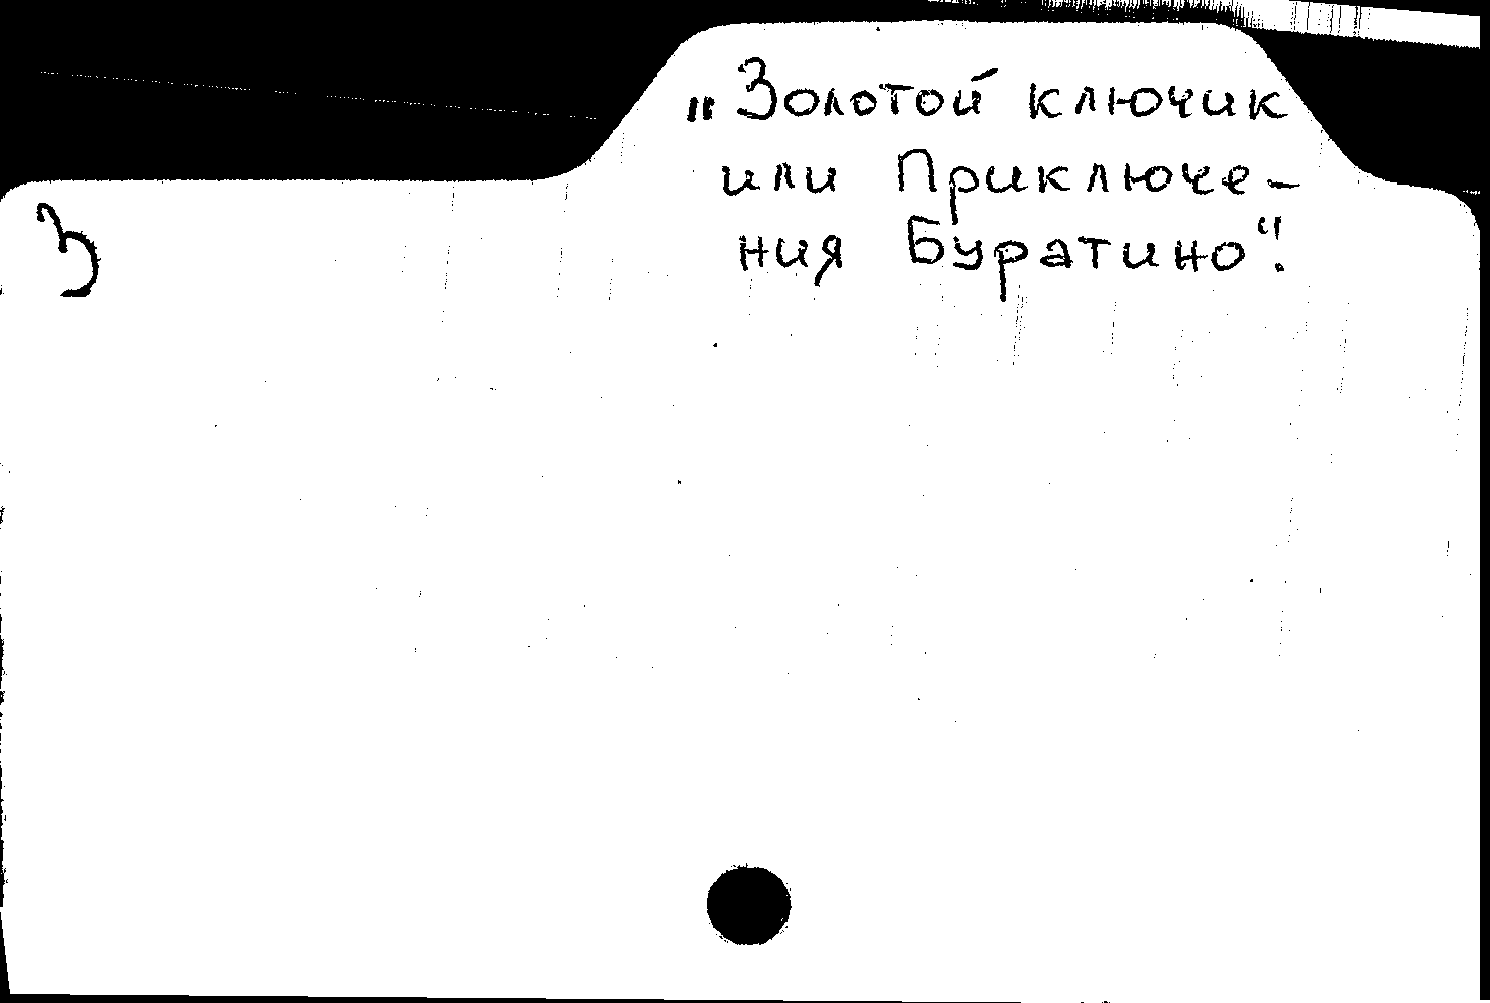 „Золотой ключик
или Приключе-
ния Буратино“.
З